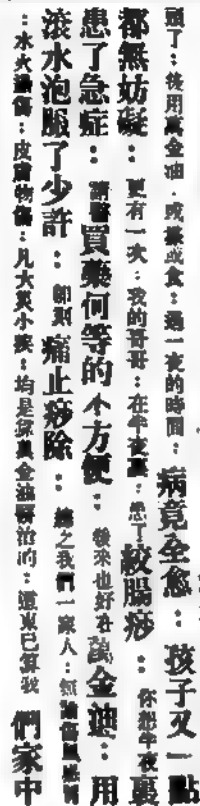 頭了：後用萬金油．或搽或食：過一夜的時間：病竟全愈：孩子又一點
都無妨礙：更有一次：我的哥哥：在半夜裏：患了絞腸痧：你想半夜裏
患了急症：請醫買藥何等的不方便：後來也好在萬金油：用
滾水泡服了少許：卽刻痛止痧除：總之我們一家人：無論傷風感冒
：水火傷：皮膚物傷：凡大災小疾：均是萬金油醫治的：這東已算我們家中